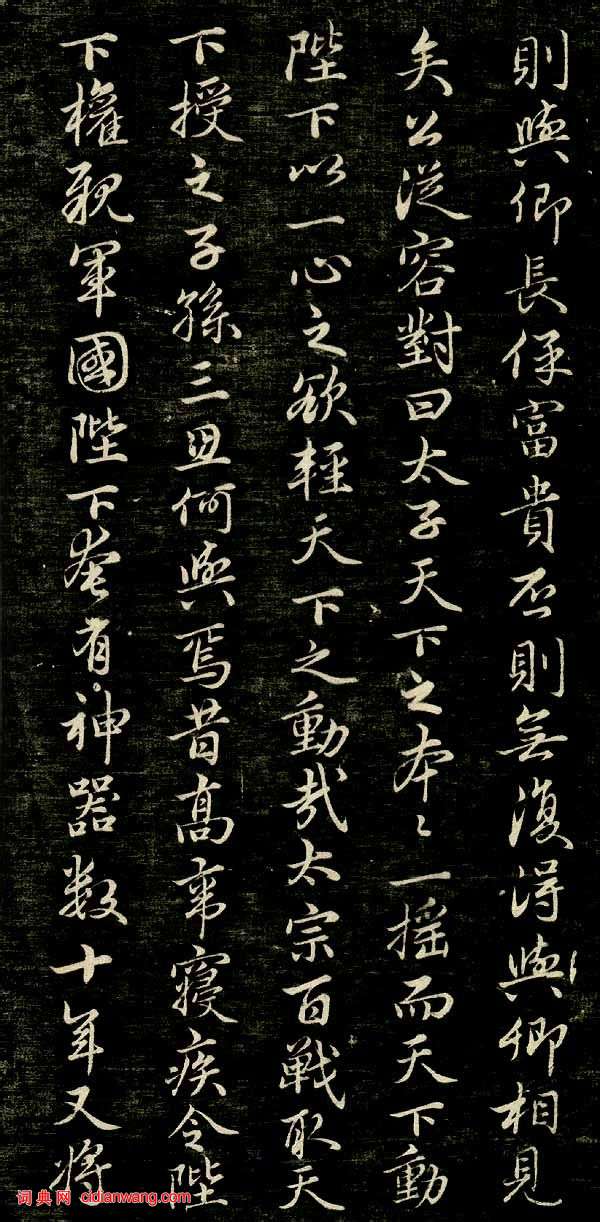 則與卿長保富貴否則無復得與卿相見
矣公從容對曰太子天下之本〻一搖而天下動
陛下以一心之欲輕天下之動哉太宗百戰取天
下授之子孫三思何與焉昔高帝寢疾令陛
下權親軍國陛下奄有神器數十年又將
词典网 cidianwang.com